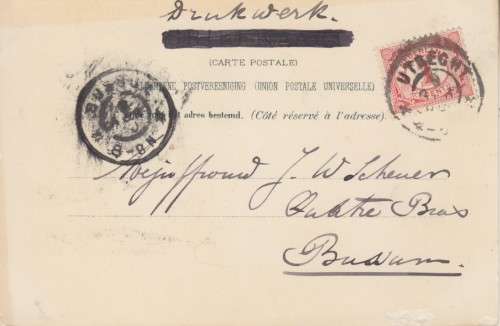 Drukwerk.
(CARTE POSTALE)
POSTVEREENIGING (UNION POSTALE UNIVERSELLE)
adres bestemd. (Côté réservé à l'adresse).
UTRECHT
BUSSUM
Mejuffrouw J. W. Scheuer
Bussum.